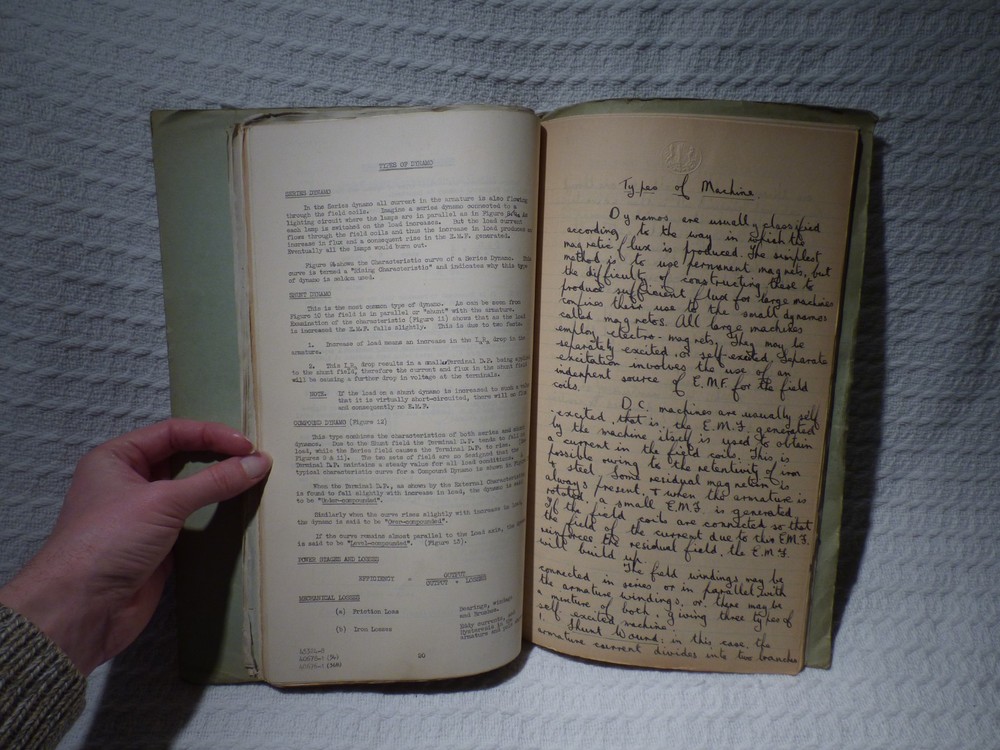 TYPES OF DYNAMO
SERIES DYNAMO
In the Series dynamo all current in the armature is also flowing
through the field coils. Imagine a series dynamo connected to a
lighting circuit where the lamps are in parallel as in Figure
each lamp is switched on the load increases. But the load current
flows through the field coils and thus the increase in load produces an
increase in flux and a consequent rise in the E.M.F. generated.
Eventually all the lamps would burn out.
Figure shows the Characteristic curve of a Series Dynamo. This
curve is termed a "Rising Characteristic" and indicates why this type
of dynamo is seldom used.
SHUNT DYNAMO
This is the most common type of dynamo. As can be seen from
Figure 10 the field is in parallel or "shunt" with the armature.
Examination of the characteristic (Figure 11) shows that as the load
is increased the E.M.F. falls slightly. This is due to two
1. Increase of load means an increase in the drop in the
armature.
2. This drop results in a smaller Terminal D.P. being
to the shunt field, therefore the current and flux in the shunt field
will be causing a further drop in voltage at the terminals.
NOTE. If the load on a shunt dynamo is increased to such a
that it is virtually short-circuited, there will be no
and consequently no E.M.F.
COMPOUND DYNAMO (Figure 12)
This type combines the characteristics of both series and shunt
dynamos. Due to the Shunt field the Terminal D.P. tends to fall on
load, while the Series field causes the Terminal D.P. to rise.
Figures 9 & 11). The two sets of field are so designed that the
Terminal D.P. maintains a steady value for all load conditions.
typical characteristic curve for a Compound Dynamo is shown in
When the Terminal D.P., as shown by the External Characteristic
is found to fall slightly with increase in load, the dynamo is said
to be "Under-compounded".
Similarly when the curve rises slightly with increase in load,
the dynamo is said to be "Over-compounded".
If the curve remains almost parallel to the Load axis, the
is said to be "Level-compounded". (Figure 13).
POWER STAGES AND LOSSES
EFFICIENCY = OUTPUT
OUTPUT + LOSSES
MECHANICAL LOSSES
(a) Friction Loss Bearings, windage
and Brushes.
(b) Iron Losses Eddy currents,
Hysteresis in the
armature and pole
20
Types of Machine
Dynamos are usually classified
according to the way in which the
magnetic flux is produced. The simplest
method is to use permanent magnets, but
the difficulty of constructing these to
produce sufficient flux for large machines
confines their use to the small dynamos
called magnetos. All large machines
employ electro-magnets. They may be
separately excited or self-excited, separate
excitation involves the use of an
indepent source of E.M.F. for the field
coils.
D.C. machines are usually self
-excited, that is, the E.M.F. generated
by the machine itself is used to obtain
a current in the field coils. This is
possible owing to the retentivity of iron
& steel. Some residual magnetism is
always present, & when the armature is
rotated, a small E.M.F. is generated
If the field coils are connected so that
the field of the current due to this E.M.F.
reinforces the residual field, the E.M.F.
will build up.
The field windings may be
connected in series or in parallel with
the armature windings, or there may be
a mixture of both, giving three types of
self-excited machine.
1. Shunt Wound: in this case the
armature current divides into two branches